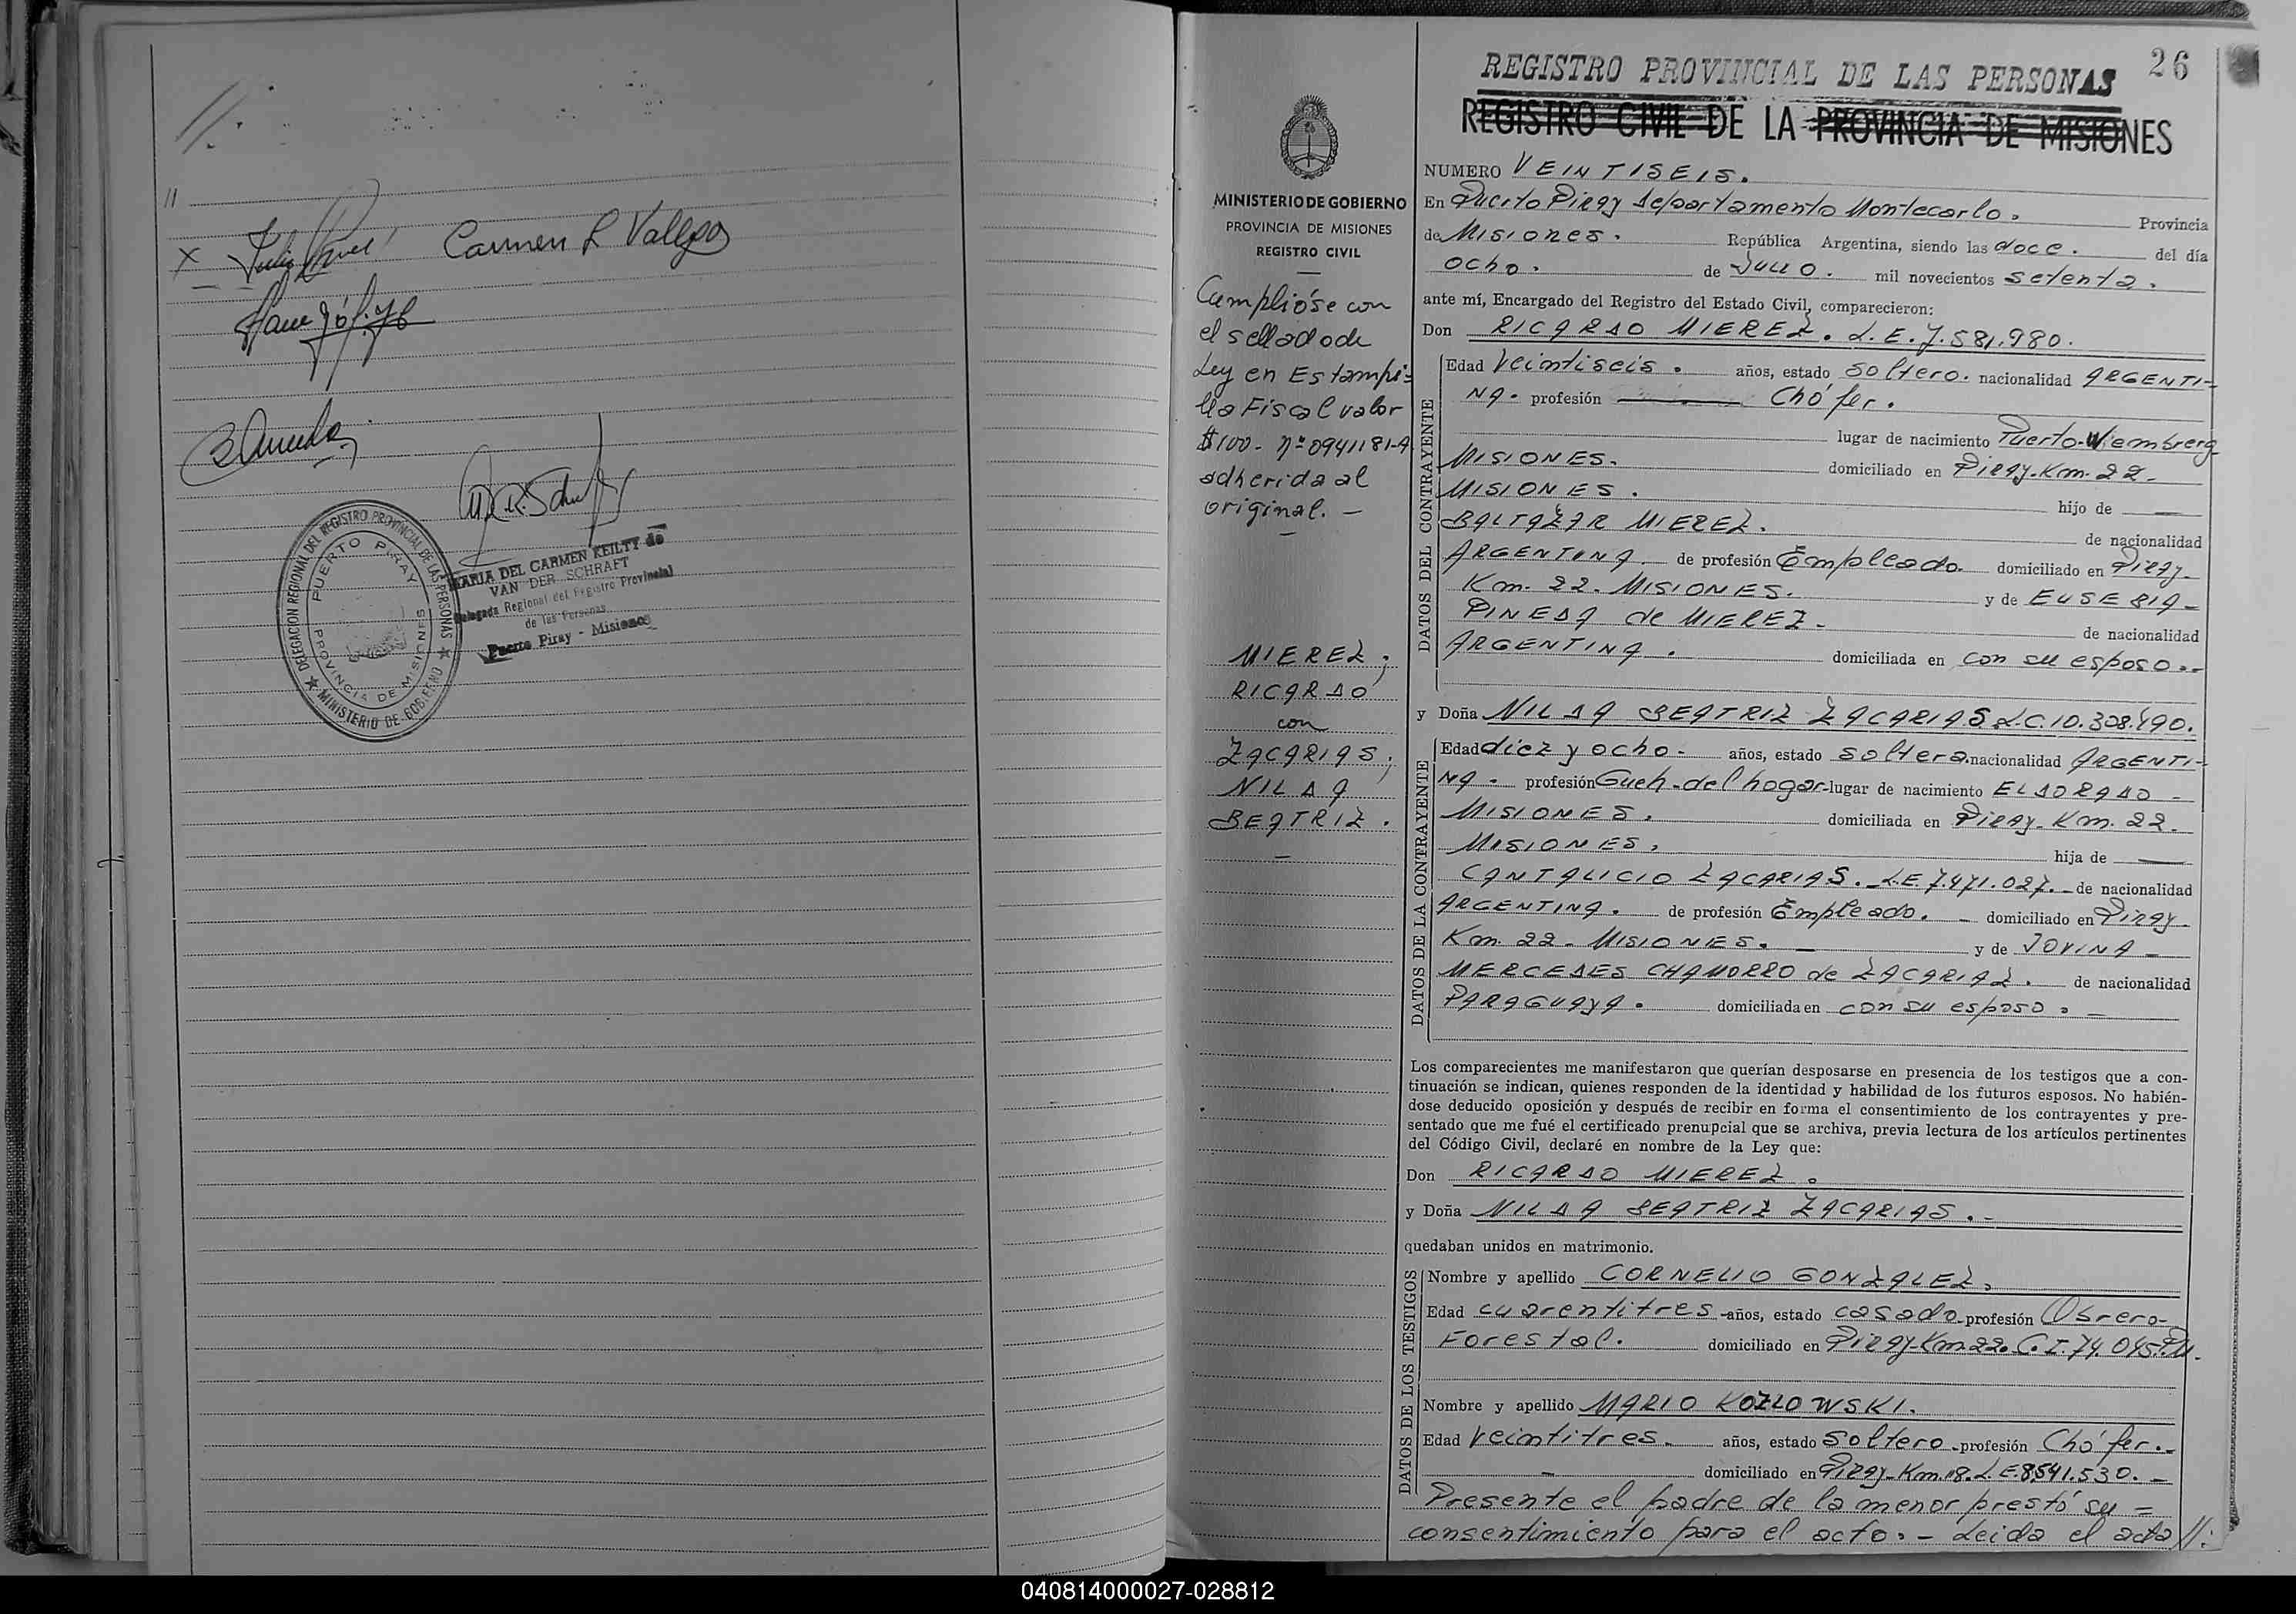 //.
//
x Carmen R Vallejos
DELEGACION REGIONAL DEL REGISTRO PROVINCIAL DE LAS PERSONAS
★ MINISTERIO DE GOBIERNO ★
PUERTO PIRAY
PROVINCIA DE MISIONES
MARIA DEL CARMEN KEILTY de
VAN DER SCHRAFT
Delegada Regional del Registro Provincial
de las Personas
Puerto Piray - Misiones
MINISTERIO DE GOBIERNO
PROVINCIA DE MISIONES
REGISTRO CIVIL
Cumplióse con
el sellado de
Ley en Estampi=
lla Fiscal valor
$100- Nº 0941181-A
adherida al
original. —
MIEREZ;
RICARDO
con
ZACARIAS;
NILDA
BEATRIZ.
—
26
REGISTRO PROVINCIAL DE LAS PERSONAS
REGISTRO CIVIL DE LA PROVINCIA DE MISIONES
NUMERO VEINTISEIS.
En Puerto Piray departamento Montecarlo. Provincia
de Misiones. República Argentina, siendo las doce. del día
ocho. de Julio. mil novecientos setenta.
ante mí, Encargado del Registro del Estado Civil, comparecieron:
Don RICARDO MIEREZ. L.E.7.581.980.
DATOS DEL CONTRAYENTE
Edad Veintiseis. años, estado soltero. nacionalidad ARGENTI-
NA. profesión Chófer.
lugar de nacimiento Puerto-Wiemberg
MISIONES. domiciliado en Piray-Km-22-
MISIONES. hijo de —
BALTAZAR MIEREZ. de nacionalidad
ARGENTINA. de profesión Empleado. domiciliado en Piray-
Km. 22. MISIONES. y de EUSEBIA-
PINEDA de MIEREZ- de nacionalidad
ARGENTINA. domiciliada en con su esposo.-
y Doña NILDA BEATRIZ ZACARIAS L.C.10.308.490.
DATOS DE LA CONTRAYENTE
Edad diez y ocho- años, estado soltera. nacionalidad ARGENTI-
NA- profesión Queh-del hogar- lugar de nacimiento ELDORADO-
MISIONES. domiciliada en Piray-Km. 22.
MISIONES, hija de —
CANTALICIO ZACARIAS.-L.E.7.471.027.- de nacionalidad
ARGENTINA. de profesión Empleado.- domiciliado en Piray-
Km. 22- MISIONES.- y de JOVINA-
MERCEDES CHAMORRO de ZACARIAZ. de nacionalidad
PARAGUAYA. domiciliada en con su esposo.-
Los comparecientes me manifestaron que querían desposarse en presencia de los testigos que a con-
tinuación se indican, quienes responden de la identidad y habilidad de los futuros esposos. No habién-
dose deducido oposición y después de recibir en forma el consentimiento de los contrayentes y pre-
sentado que me fué el certificado prenupcial que se archiva, previa lectura de los artículos pertinentes
del Código Civil, declaré en nombre de la Ley que:
Don RICARDO MIEREZ.
y Doña NILDA BEATRIZ ZACARIAS.-
quedaban unidos en matrimonio.
DATOS DE LOS TESTIGOS
Nombre y apellido CORNELIO GONZALEZ,
Edad cuarentitres- años, estado casado- profesión Obrero-
Forestal. domiciliado en Piray-Km.22. C.I.74.045.P.M.
Nombre y apellido MARIO KOZLOWSKI.
Edad Veintitres- años, estado Soltero- profesión Chófer.-
- domiciliado en Piray-Km.18. L.E.8.541.530.-
Presente el padre de la menor prestó su =
consentimiento para el acto.- Leida el acta //:
040814000027-028812